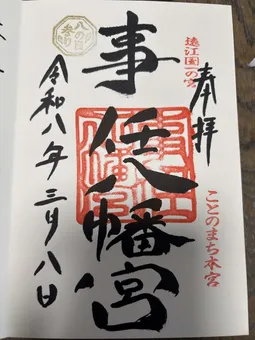 奉拝
遠江国一の宮
ことのまち本宮
事任八幡宮
八の日
令和八年三月八日